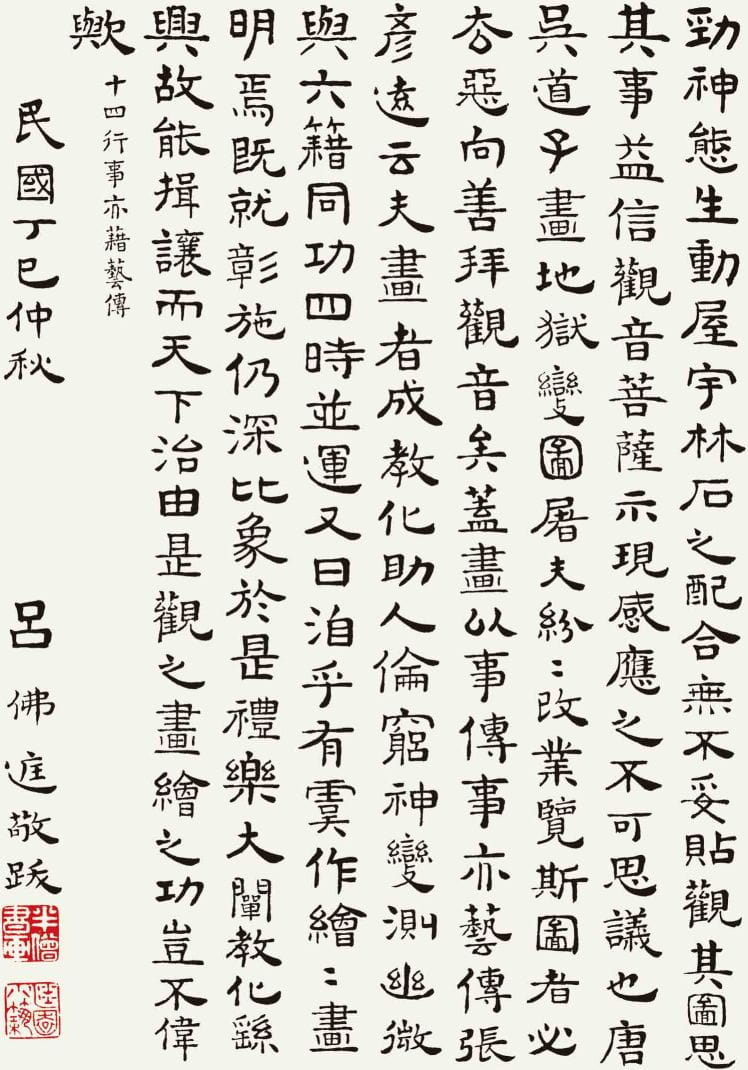 勁神態生動屋宇林石之配合無不妥貼觀其圖思
其事益信觀音菩薩示現感應之不可思議也唐
吳道子畫地獄變圖屠夫紛〻改業覽斯圖者必
去惡向善拜觀音矣蓋畫以事傳事亦藝傳張
彥遠云夫畫者成教化助人倫窮神變測幽微
與六籍同功四時並運又曰洎乎有虞作繪〻畫
明焉既就彰施仍深比象於是禮樂大闡教化繇
興故能揖讓而天下治由是觀之畫繪之功豈不偉
歟 十四行事亦藉藝傳
民國丁巳仲秋 呂佛庭敬跋
半僧書畫